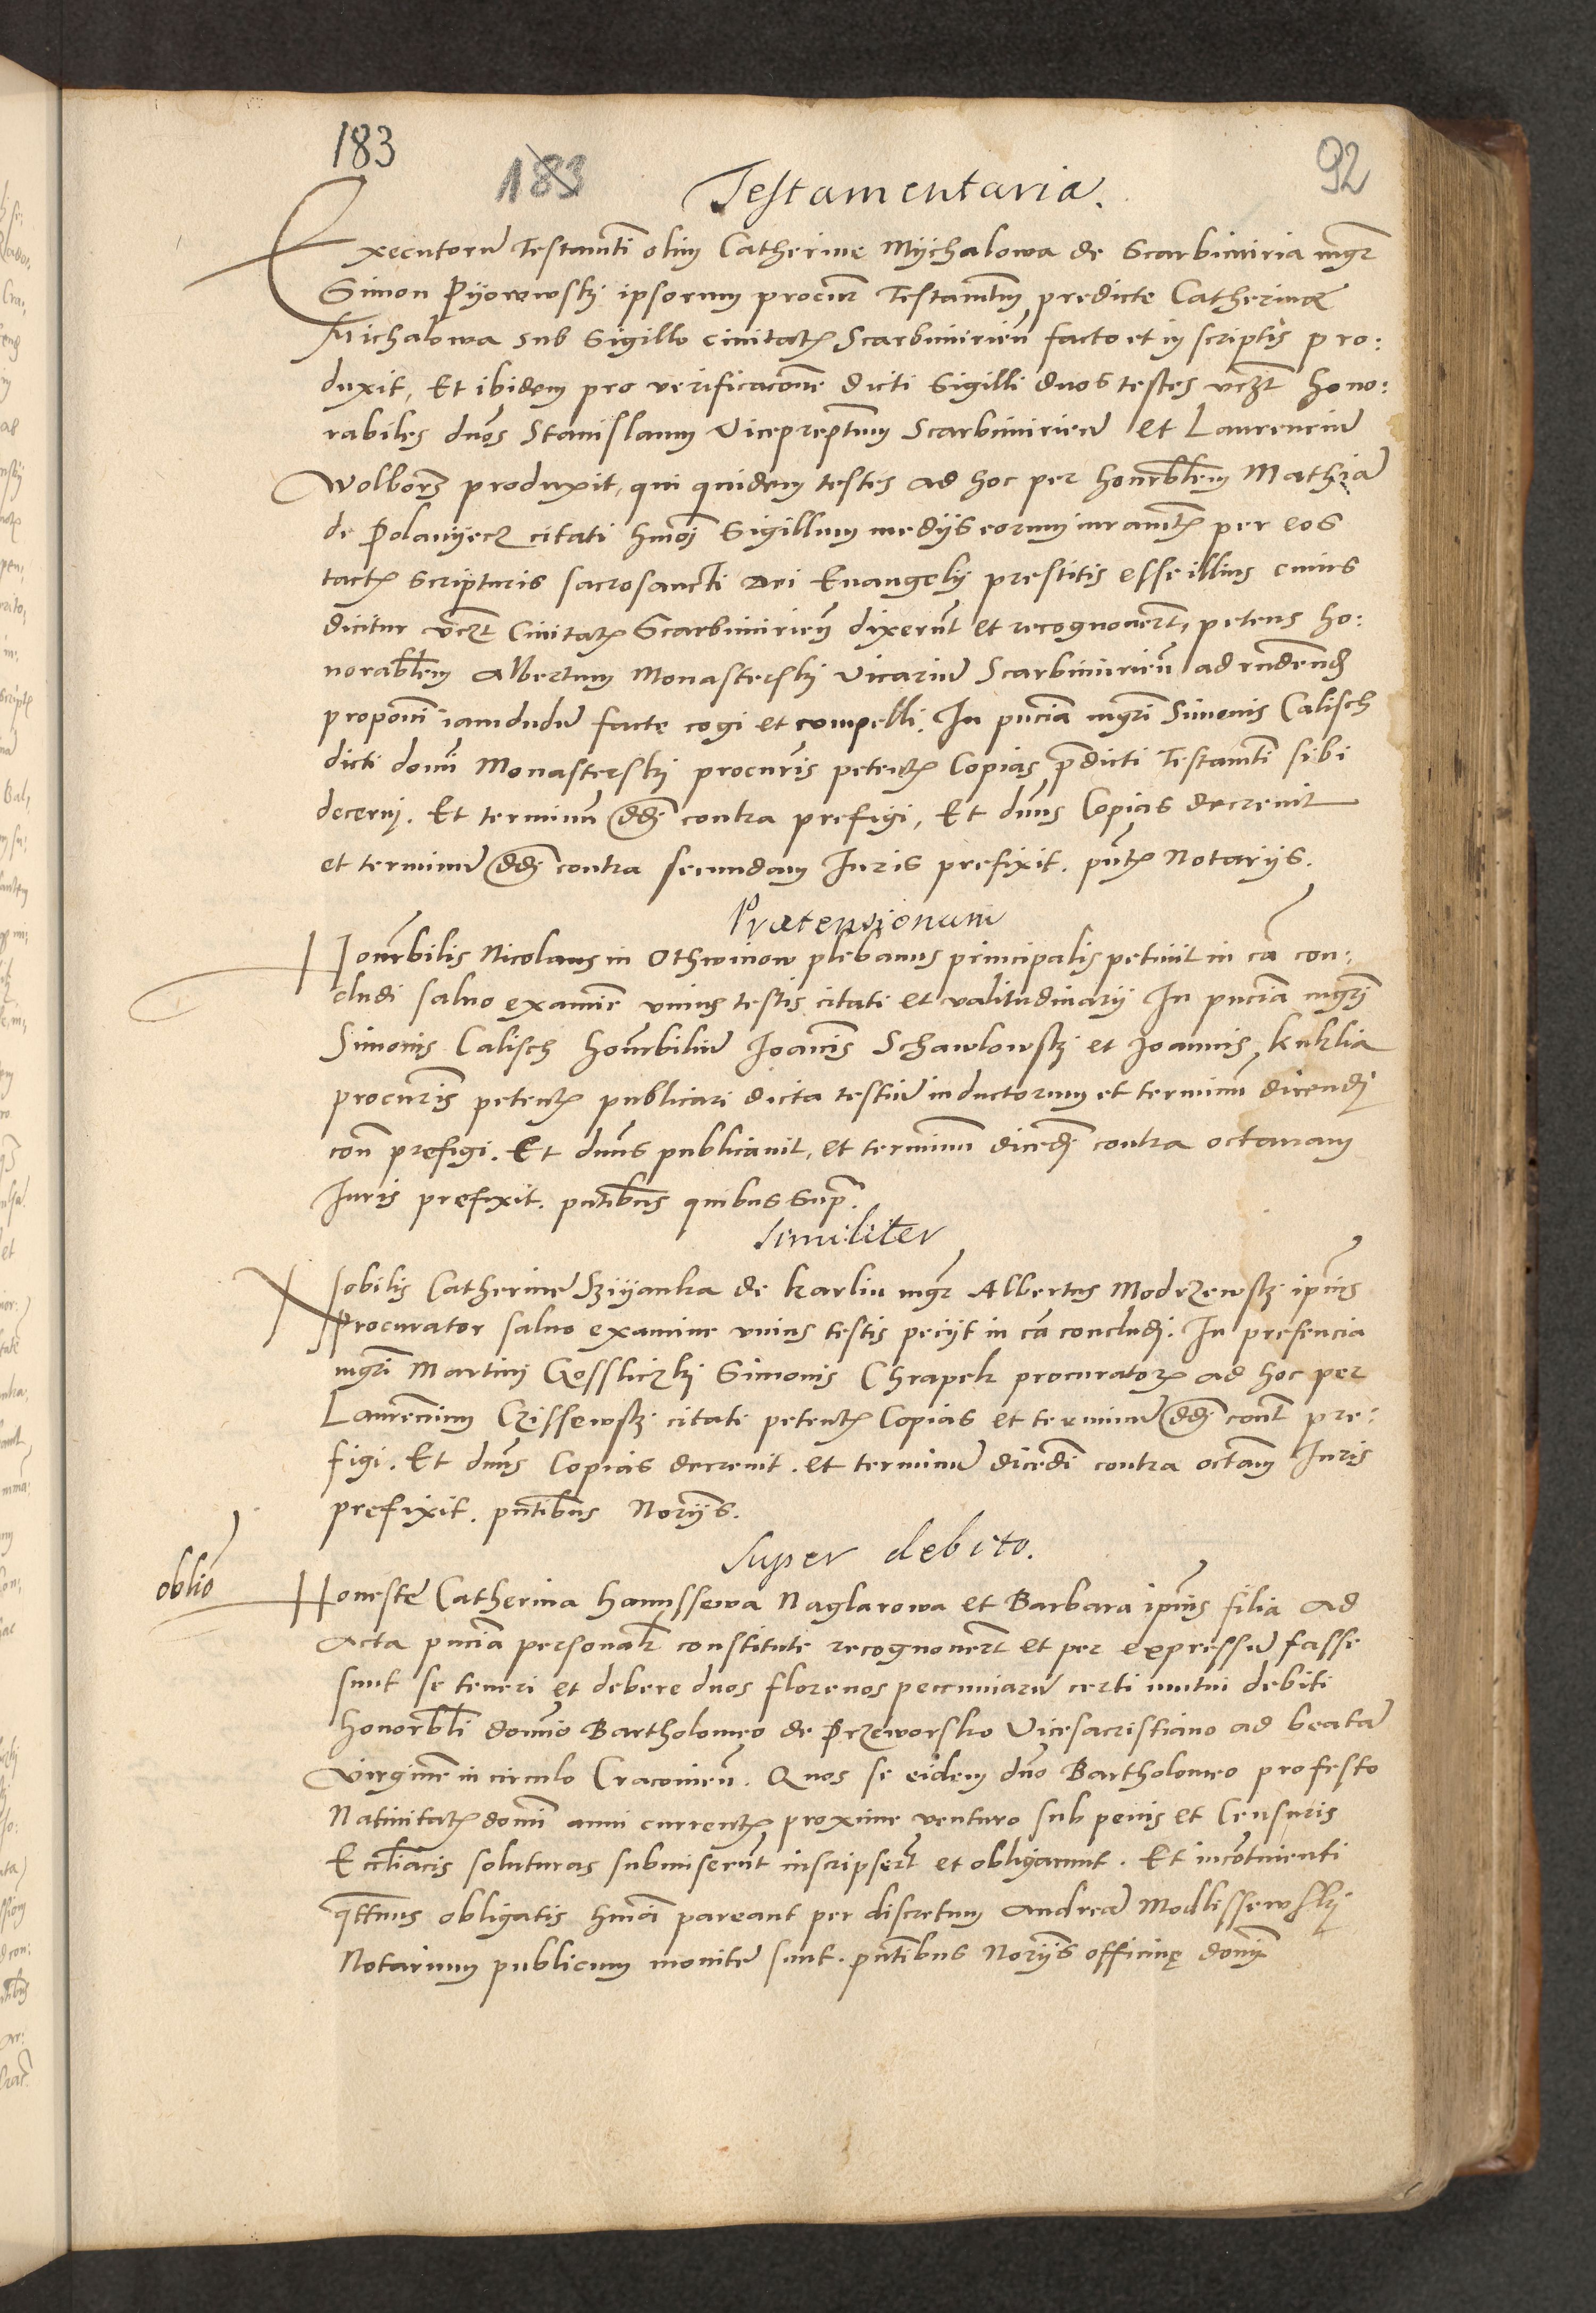 183
183
92
Testamentaria.
Executorum Testamti olim Catherine Mychalowa de Scarbimiria mgr
Simon Pyorowsky ipsorum procur Testamtum predicte Catherine
Michalowa sub Sigillo civitatis Scarbimirien facto et in scriptis pro:
duxit, Et ibidem pro verificacione dicti Sigilli duos testes vczt hono:
rabiles dnos Stanislaum Viceprepltum Scarbimirien et Laurencium
Wolborz produxit, qui quidem testes ad hoc per honorablem Mathiam
de Polanyecz citati hmoi Sigillum medys eorum iuramtis per eos
tactis scripturis sacrosancti dei Evangely prestitis esse illius cuius
dicitur vczt Civitatis Scarbimirien dixerunt et recognoverunt, petens ho:
norablem Albertum Monastersky Vicarium Scarbimirien ad rndendum
proponi iamdudum facte cogi et compelli. In pncia mgri Simonis Calisch
dicti domi Monastersky procuris petentis Copias pdicti Testamti sibi
decerni. Et terminum ddi contra prefigi, Et dnus Copias decrevit
et terminum ddi contra secundam Iuris prefixit. pntis Notariis.
Praetensionum
Honorabilis Nicolaus in Othwinow plebanus principalis petivit in ca con:
cludi salvo examine unius testis citati et valitudinarii In pncia mgri
Simonis Calisch honorabilium Joannis Schawlowsky et Joannis Kuklia
procuris petentis publicari dicta testium inductorum et terminum dicendi
con prefigi. Et dnus publicavit, et terminum dicendi contra octavam
Iuris prefixit. pntibus quibus supra.
Similiter
Nobilis Catherine Sziyanka de Karlin mgr Albertus Modrzewsky ipsius
Procurator salvo examine unius testis peciit in ca concludi. In presencia
mgri Martini Gosslickzky Simonis Chrapek procuratoris ad hoc per
Laurencium Crissewsky citati petentis Copias et terminum ddi cont pre:
figi. Et dnus Copias decrevit. et terminum dicendi contra octavam Iuris
prefixit. pntibus Noriis.
Super debito.
oblio
Honeste Catherina Hanussewa Naglarowa et Barbara ipsius filia ad
Acta pncia personalr constitute recognoverunt et per expressum fasse
sunt se teneri et debere duos florenos peccuniarum certi mutui debiti
honorabli domino Bartholomeo de Przeworsko Vicesacristiano ad beatam
Virginem in circulo Cracovien. Quos se eidem dno Bartholomeo pro festo
Nativitatis domi anni currentis proxime venturo sub penis et Censuris
Eccliacis soluturas submiserunt inscripserunt et obligarunt. Et incontinenti
qttnus obligatis hmoi pareant per discretum Andream Modlissewsky
Notarium publicum monite sunt. pntibus Noriis officine domi